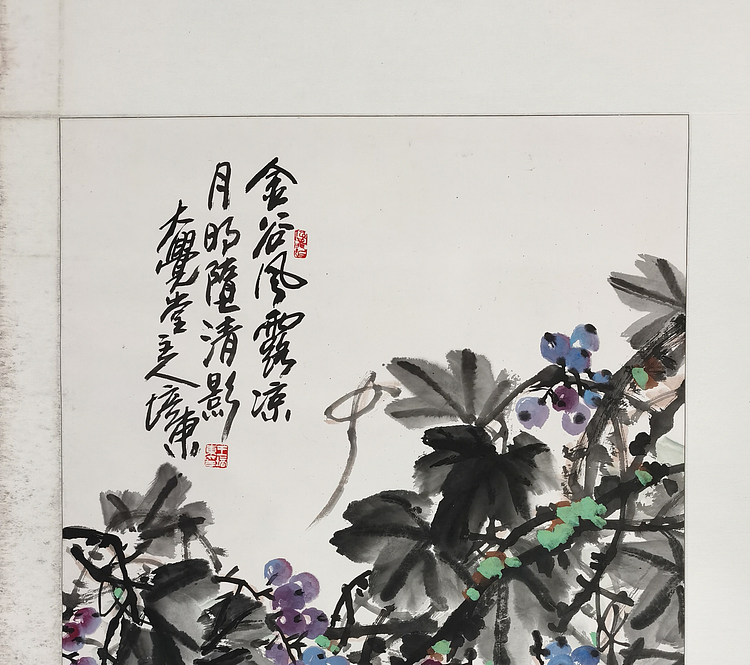 金谷风露凉
月明隨清影
大覺堂主人培東